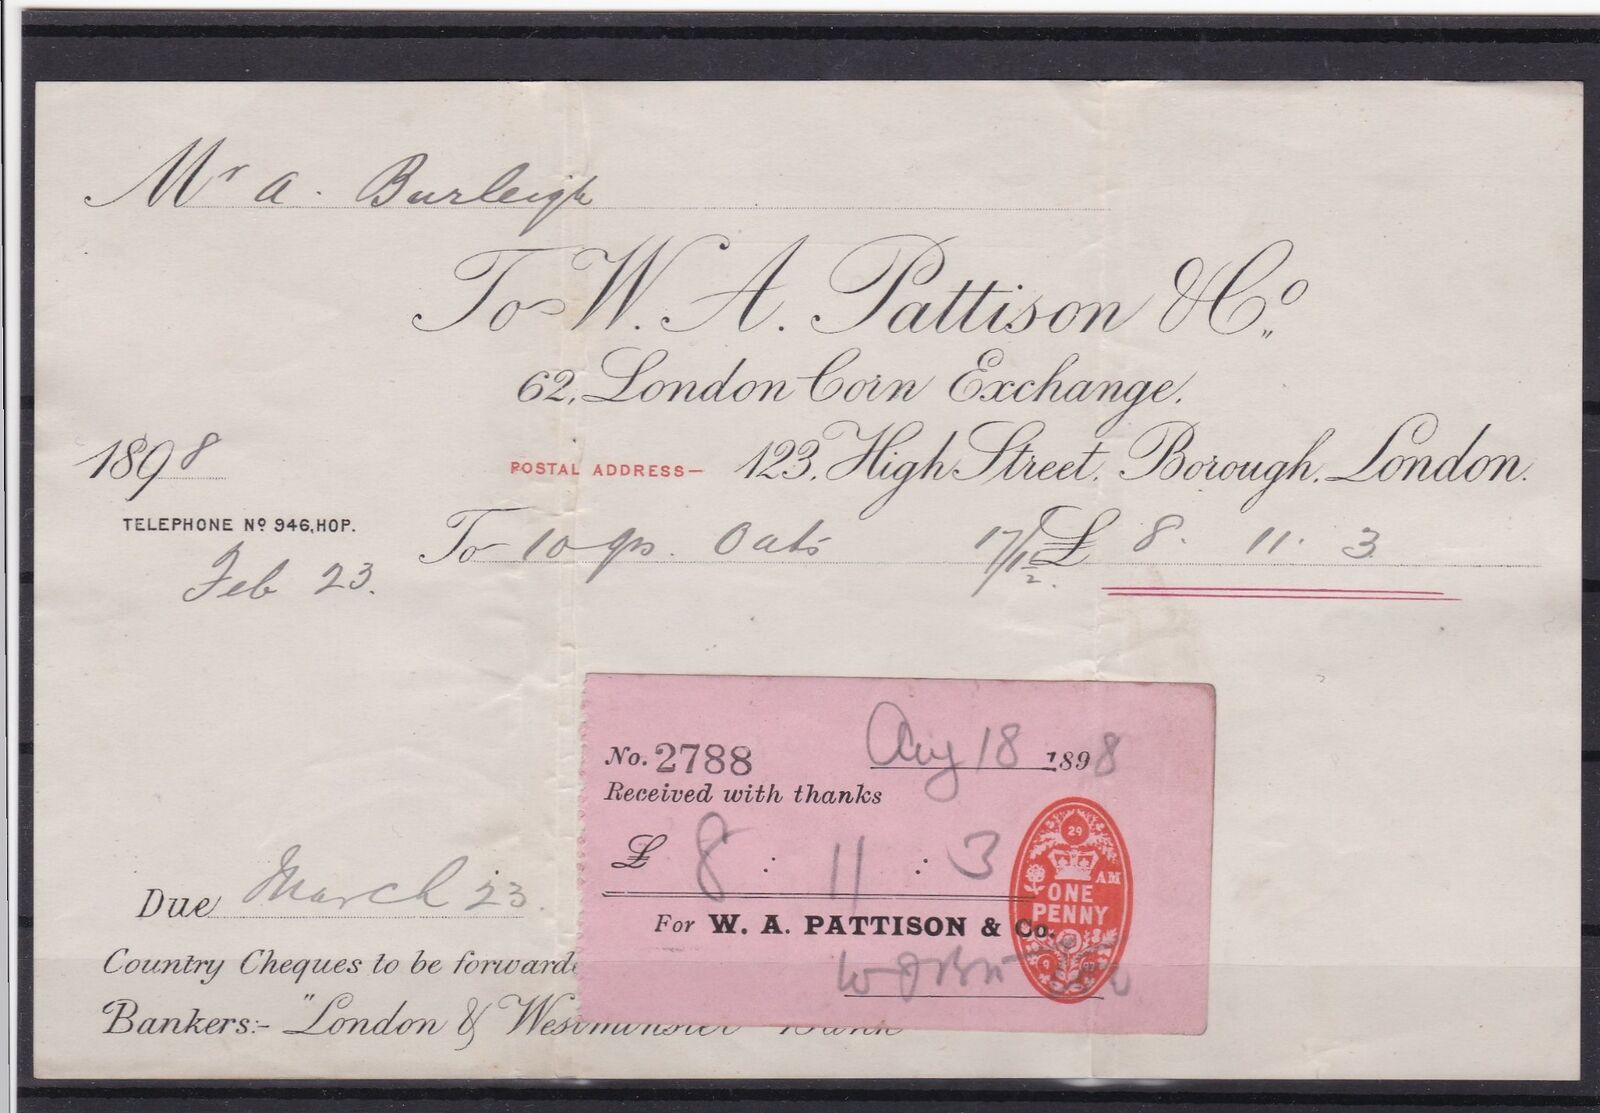 Mr A. Burleigh
To W. A. Pattison & Co.,
62, London Corn Exchange.
1898
POSTAL ADDRESS— 123, High Street, Borough, London.
TELEPHONE No 946, HOP.
To 10 qrs. Oats 17/1½ £ 8. 11. 3
Feb 23.
No. 2788 Aug 18 1898
Received with thanks
£ 8 : 11 : 3
For W. A. PATTISON & Co.
29
AM
ONE
PENNY
Due March 23.
Country Cheques to be forwarde
Bankers:- "London & Westminster Bank